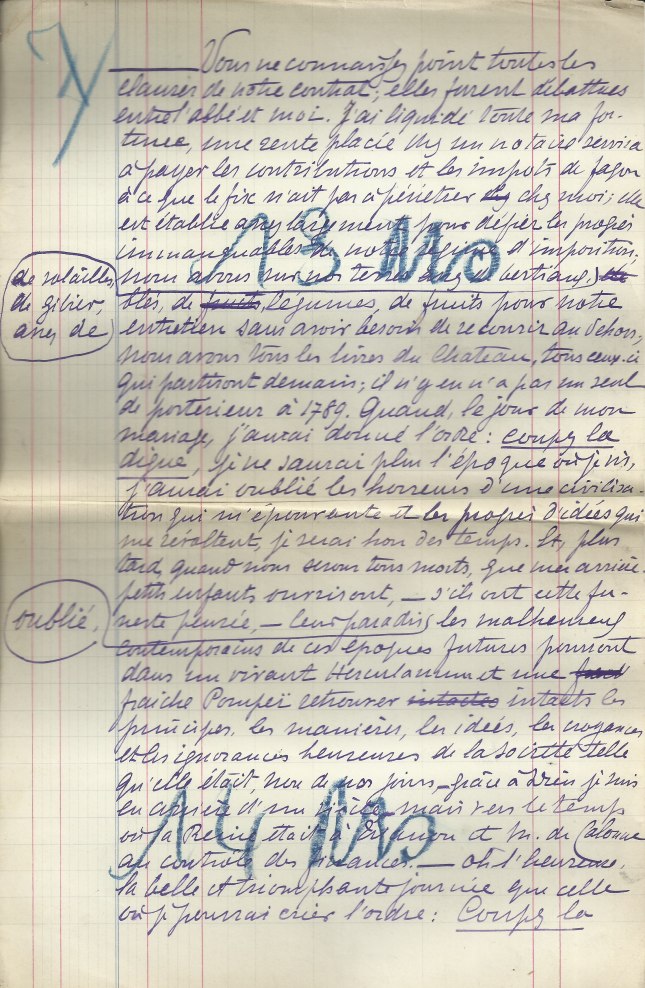 Vous ne connaissez point toutes les
clauses de notre contrat; elles furent débattues
entre l'abbé et moi. J'ai liquidé toute ma for-
tune, une rente placée chez un notaire servira
à payer les contributions et les impôts de façon
à ce que le fisc n'ait pas à pénétrer chez moi; elle
est établie assez largement pour défier les progrès
immanquables de notre d'imposition.
13 Mo
nous avons sur nos terres assez de bestiaux,
de volailles,
de gibier,
assez de
blés, de fruits, légumes, de fruits pour notre
entretien sans avoir besoin de recourir au dehors;
nous avons tous les livres du Chateau, tous ceux-ci
qui partiront demain; il n'y en n'a pas un seul
de postérieur à 1789. Quand, le jour de mon
mariage, j'aurai donné l'ordre: coupez la
digue, je ne saurai plus l'époque où je vis,
j'aurai oublié les horreurs d'une civilisa-
tion qui m'épouvante et les progrès d'idées qui
me révoltent, je serai hors des temps. Et, plus
tard, quand nous serons tous morts, que mes arrière-
petits enfants ouvriront, — s'ils ont cette fu-
neste pensée, — leur paradis
oublié,
les malheureux
contemporains de ces époques futures pourront
dans un vivant Herculanum et une
fraîche Pompeï retrouver intactes intacts les
principes, les manières, les idées, les croyances
et les ignorances heureuses de la société telle
qu'elle était, non de nos jours — grâce à Dieu je suis
en arrière d'un siècle — mais vers le temps
où la Reine était à Trianon et M. de Calonne
au contrôle des finances. — Oh! l'heureuse,
14 Mo
la belle et triomphante journée que celle
où je pourrai crier l'ordre: Coupez la